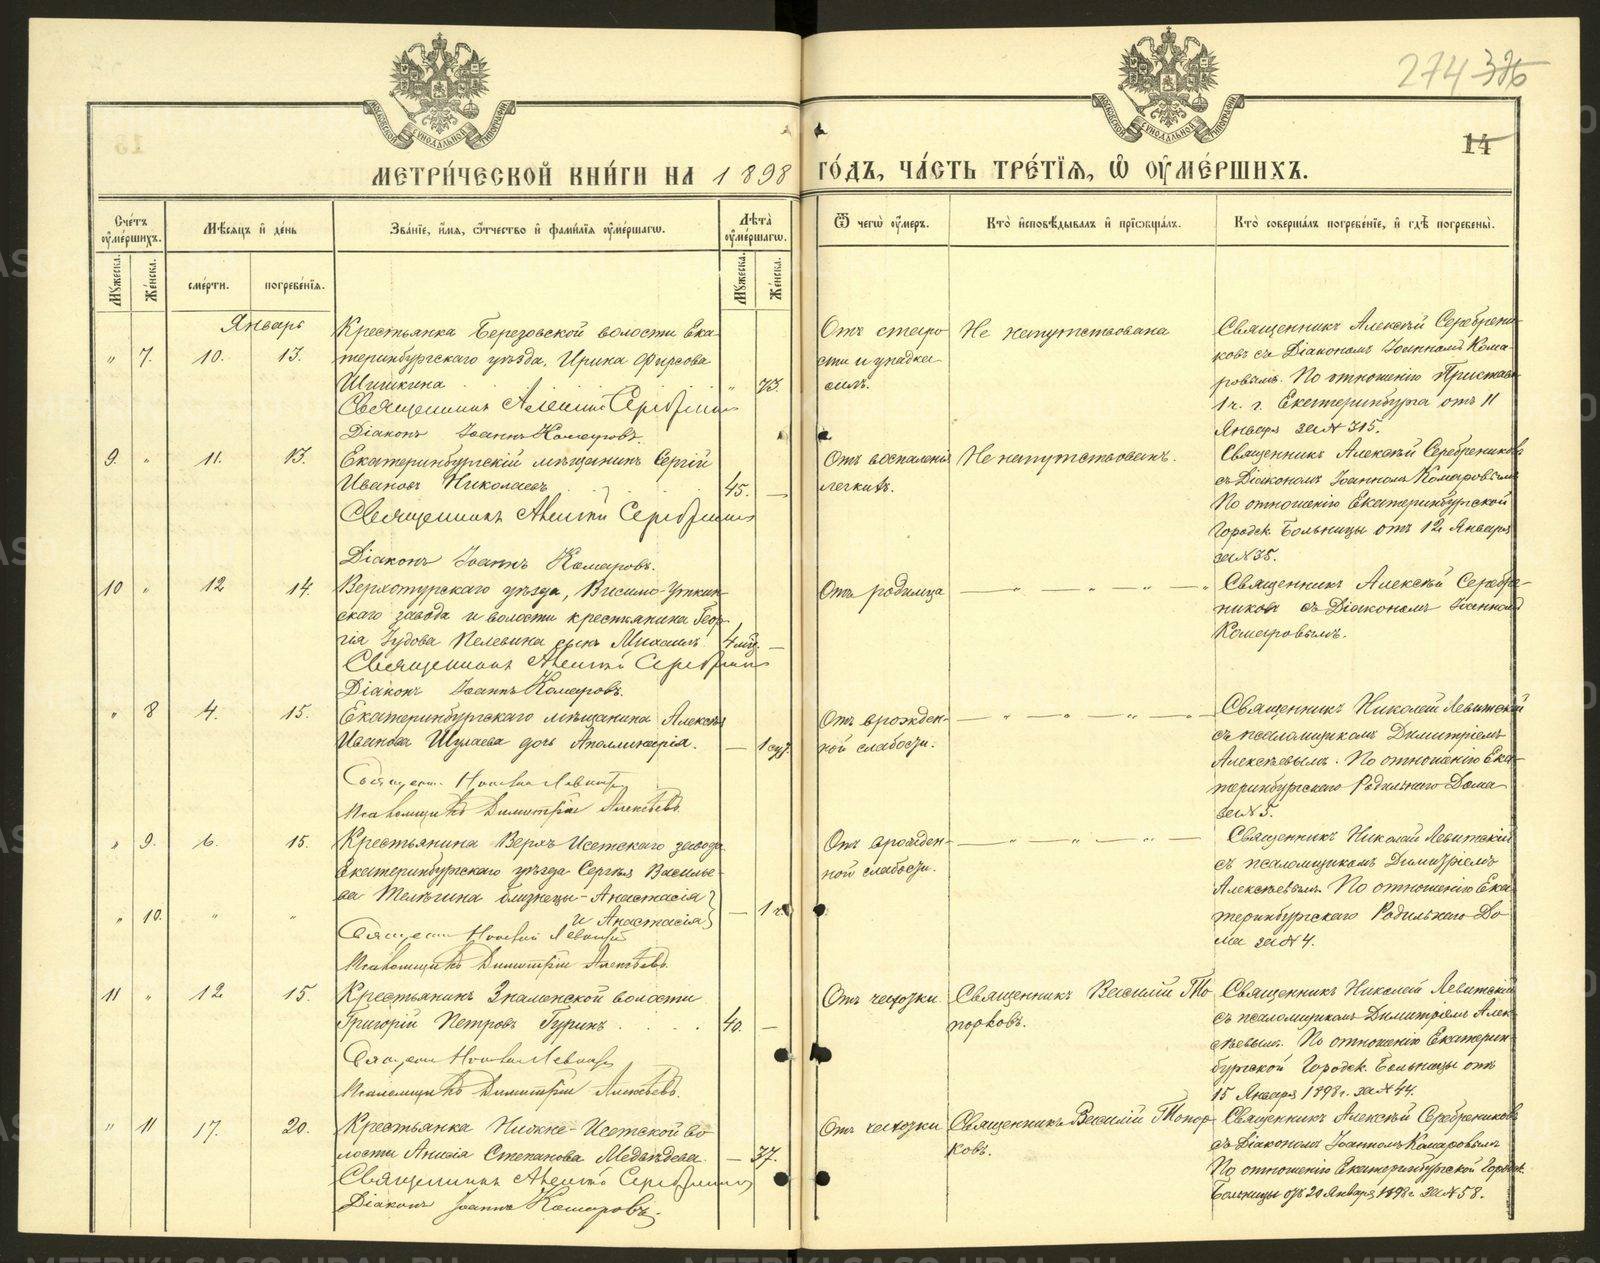 274 376
14
МЕТРИ́ЧЕСКОЙ КНИ́ГИ НА 1898 ГО́ДЪ, ЧА́СТЬ ТРЕ́ТЇѦ, Ѡ҆ ОУ҆МЕ́РШИХЪ.
Сче́тъ оу҆ме́ршихъ.
Мѣ́сѧцъ и҆ де́нь
Зва́нїе, и҆́мѧ, ѻ҆́тчество и҆ фами́лїѧ оу҆ме́ршагѡ.
Лѣ́та оу҆ме́ршагѡ.
Ѿ чегѡ̀ оу҆́меръ.
Кто̀ и҆сповѣ́дывалъ и҆ прїѡбща́лъ.
Кто̀ соверша́лъ погребе́нїе, и҆ гдѣ̀ погребены̀.
Мꙋ́жеска.
Же́нска.
сме́рти.
погребе́нїѧ.
Мꙋ́жеска.
Же́нска.
Январь
" 7. 10. 13.
Крестьянка Березовской волости Ека-
теринбургскаго уѣзда, Ирина Фирсова
Шишкина " 73.
Священникъ Алексій Серебрениковъ
Діаконъ Іоаннъ Комаровъ.
Отъ старо
сти и упадка
силъ.
Не напутствована
Священникъ Алексѣй Серебрени-
ковъ съ Діакономъ Іоанномъ Кома-
ровымъ. По отношенію Пристава
1 ч. г. Екатеринбурга отъ 11
Января за № 315.
9. " 11. 13.
Екатеринбургскій мѣщанинъ Сергій
Ивановъ Николаевъ 45. —
Священникъ Алексій Серебрениковъ
Діаконъ Іоаннъ Комаровъ.
Отъ воспаленія
легкихъ.
Не напутствованъ.
Священникъ Алексѣй Серебрениковъ
съ Діакономъ Іоанномъ Комаровымъ
По отношенію Екатеринбургской
Городск. Больницы отъ 12 Января
за № 35.
10 " 12 14.
Верхотурскаго уѣзда, Висимо-Уткин-
скаго завода и волости крестьянина Геор-
гія Іудова Пелевина сынъ Михаилъ 4 мѣс. —
Священникъ Алексій Серебрениковъ
Діаконъ Іоаннъ Комаровъ.
Отъ родимца
— " — " — " — "
Священникъ Алексѣй Серебре-
никовъ съ Діакономъ Іоанномъ
Комаровымъ.
" 8 4. 15.
Екатеринбургскаго мѣщанина Алексѣя
Иванова Шулаева дочь Аполлинарія. — 1 сут.
Священ. Николай Левитскій
Псаломщикъ Димитрій Алексѣевъ.
Отъ врожден-
ной слабости.
— " — " — " — "
Священникъ Николай Левитскій
съ псаломщикомъ Димитріемъ
Алексѣевымъ. По отношенію Ека-
теринбургскаго Родильнаго Дома
за № 3.
" 9. 6. 15.
Крестьянина Верхъ-Исетскаго завода
Екатеринбургскаго уѣзда Сергѣя Василье-
ва Телѣгина близнецы - Анастасія
" 10. " "
и Анастасія — 1 ч.
Священ. Николай Левитскій
Псаломщикъ Димитрій Алексѣевъ.
Отъ врожден-
ной слабости.
— " — " — " —
Священникъ Николай Левитскій
съ псаломщикомъ Димитріемъ
Алексѣевымъ. По отношенію Ека-
теринбургскаго Родильнаго До-
ма за № 4.
11 " 12 15.
Крестьянинъ Знаменской волости
Григорій Петровъ Гуринъ . . . . 40. —
Священ. Николай Левитскій
Псаломщикъ Димитрій Алексѣевъ.
Отъ чахотки
Священникъ Василій То
порковъ.
Священникъ Николай Левитскій
съ псаломщикомъ Димитріемъ Алек-
сѣевымъ. По отношенію Екатерин-
бургской Городск. Больницы отъ
15 Января 1898 г. за № 44.
" 11 17. 20.
Крестьянка Нижне-Исетской во
лости Анисія Степанова Медвѣдева. — 37.
Священникъ Алексій Серебрениковъ
Діаконъ Іоаннъ Комаровъ.
Отъ чахотки
Священникъ Василій Топор
ковъ.
Священникъ Алексѣй Серебрениковъ
съ Діакономъ Іоанномъ Комаровымъ
По отношенію Екатеринбургской Городск.
Больницы отъ 20 Января 1898 г. за № 58.